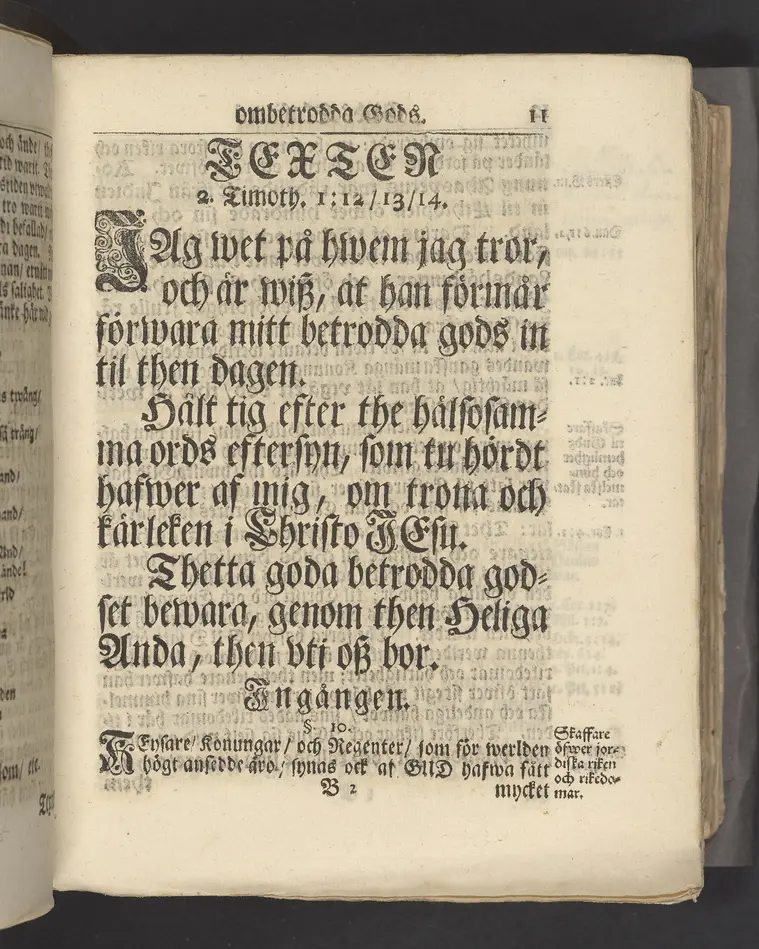 ombetrodda Gods. 11
TEXTEN
2. Timoth. 1:12/13/14.
JAg wet på hwem jag tror,
och är wiß, at han förmår
förwara mitt betrodda gods in
til then dagen.
Hålt tig efter the hälsosam-
ma ords eftersyn, som tu hördt
hafwer af mig, om trona och
kärleken i Christo JEsu.
Thetta goda betrodda god-
set bewara, genom then Heliga
Anda, then vti oß bor.
Ingången.
§ 10.
KEysare/ Konungar/ och Regenter/ som för werlden
högt ansedde äro/ synas ock af GUD hafwa fått
B 2 mycket
Skaffare
öfwer jor-
diska riken
och rikedo-
mar.